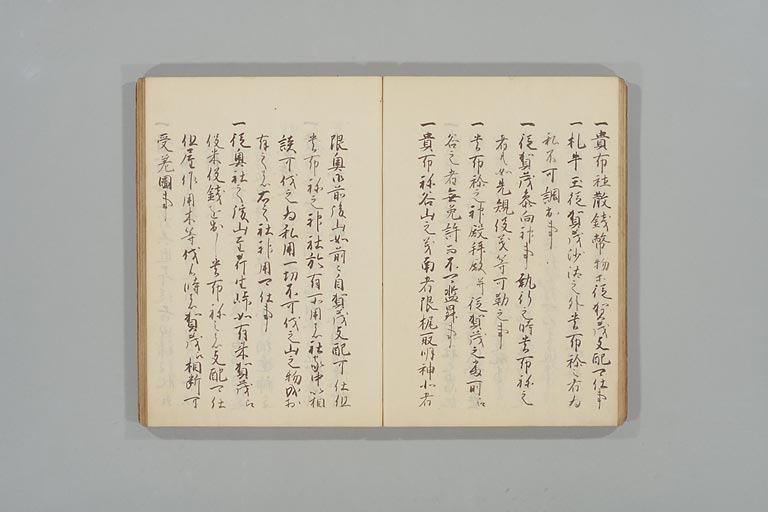 一貴布祢散銭幣物等従賀茂支配可仕事
一札牛王従賀茂沙汰之外貴布祢之者為
私不可調出事
一従賀茂参向神事執行之時貴布祢之
者共如先規役義等可勤之事
一貴布祢之神殿拝殿并従賀茂之番所江
谷之者無免許而不可濫昇事
一貴布祢谷山之義南者限梶取明神北者
限奥御前後山如前々自賀茂支配可仕但
貴布祢之神社於有所用者社家中江相
談可伐之為私用一切不可伐之山之物成於
有之者右之社神用可仕事
一従奥社之後山至芹生峠如有来賀茂江
役米役銭を出し貴布祢之者支配可仕
但屋作用木等伐候時者賀茂江相断可
受差圖事